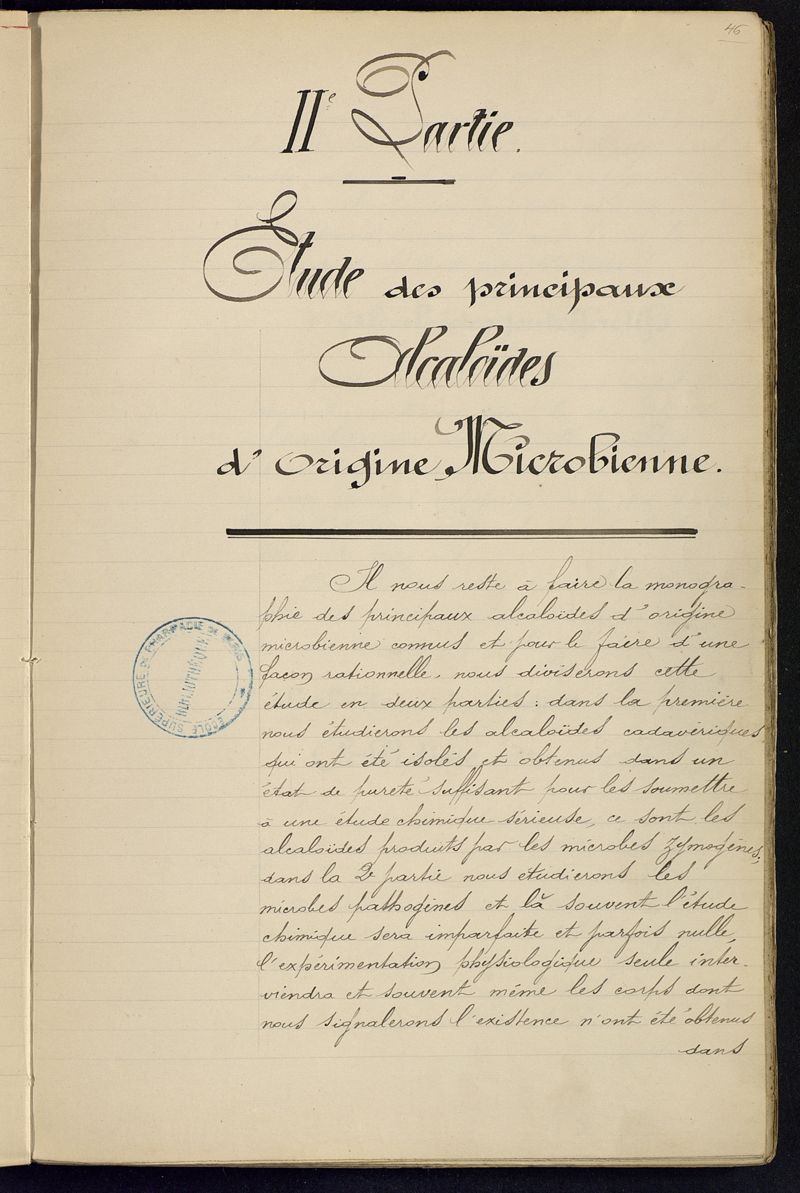 46
IIe Partie.
Etude des principaux
Alcaloïdes
d'origine Microbienne.
Il nous reste à faire la monogra-
phie des principaux alcaloïdes d'origine
microbienne connus et pour le faire d'une
façon rationnelle, nous diviserons cette
étude en deux parties : dans la première
nous étudierons les alcaloïdes cadavériques
qui ont été isolés et obtenus dans un
état de pureté suffisant pour les soumettre
à une étude chimique sérieuse, ce sont les
alcaloïdes produits par les microbes zymogènes;
dans la 2e partie nous etudierons les
microbes pathogènes et là souvent l'étude
chimique sera imparfaite et parfois nulle,
l'expérimentation physiologique seule inter-
viendra et souvent même les corps dont
nous signalerons l'existence n'ont été obtenus
dans
ÉCOLE SUPÉRIEURE DE PHARMACIE DE PARIS
BIBLIOTHÈQUE